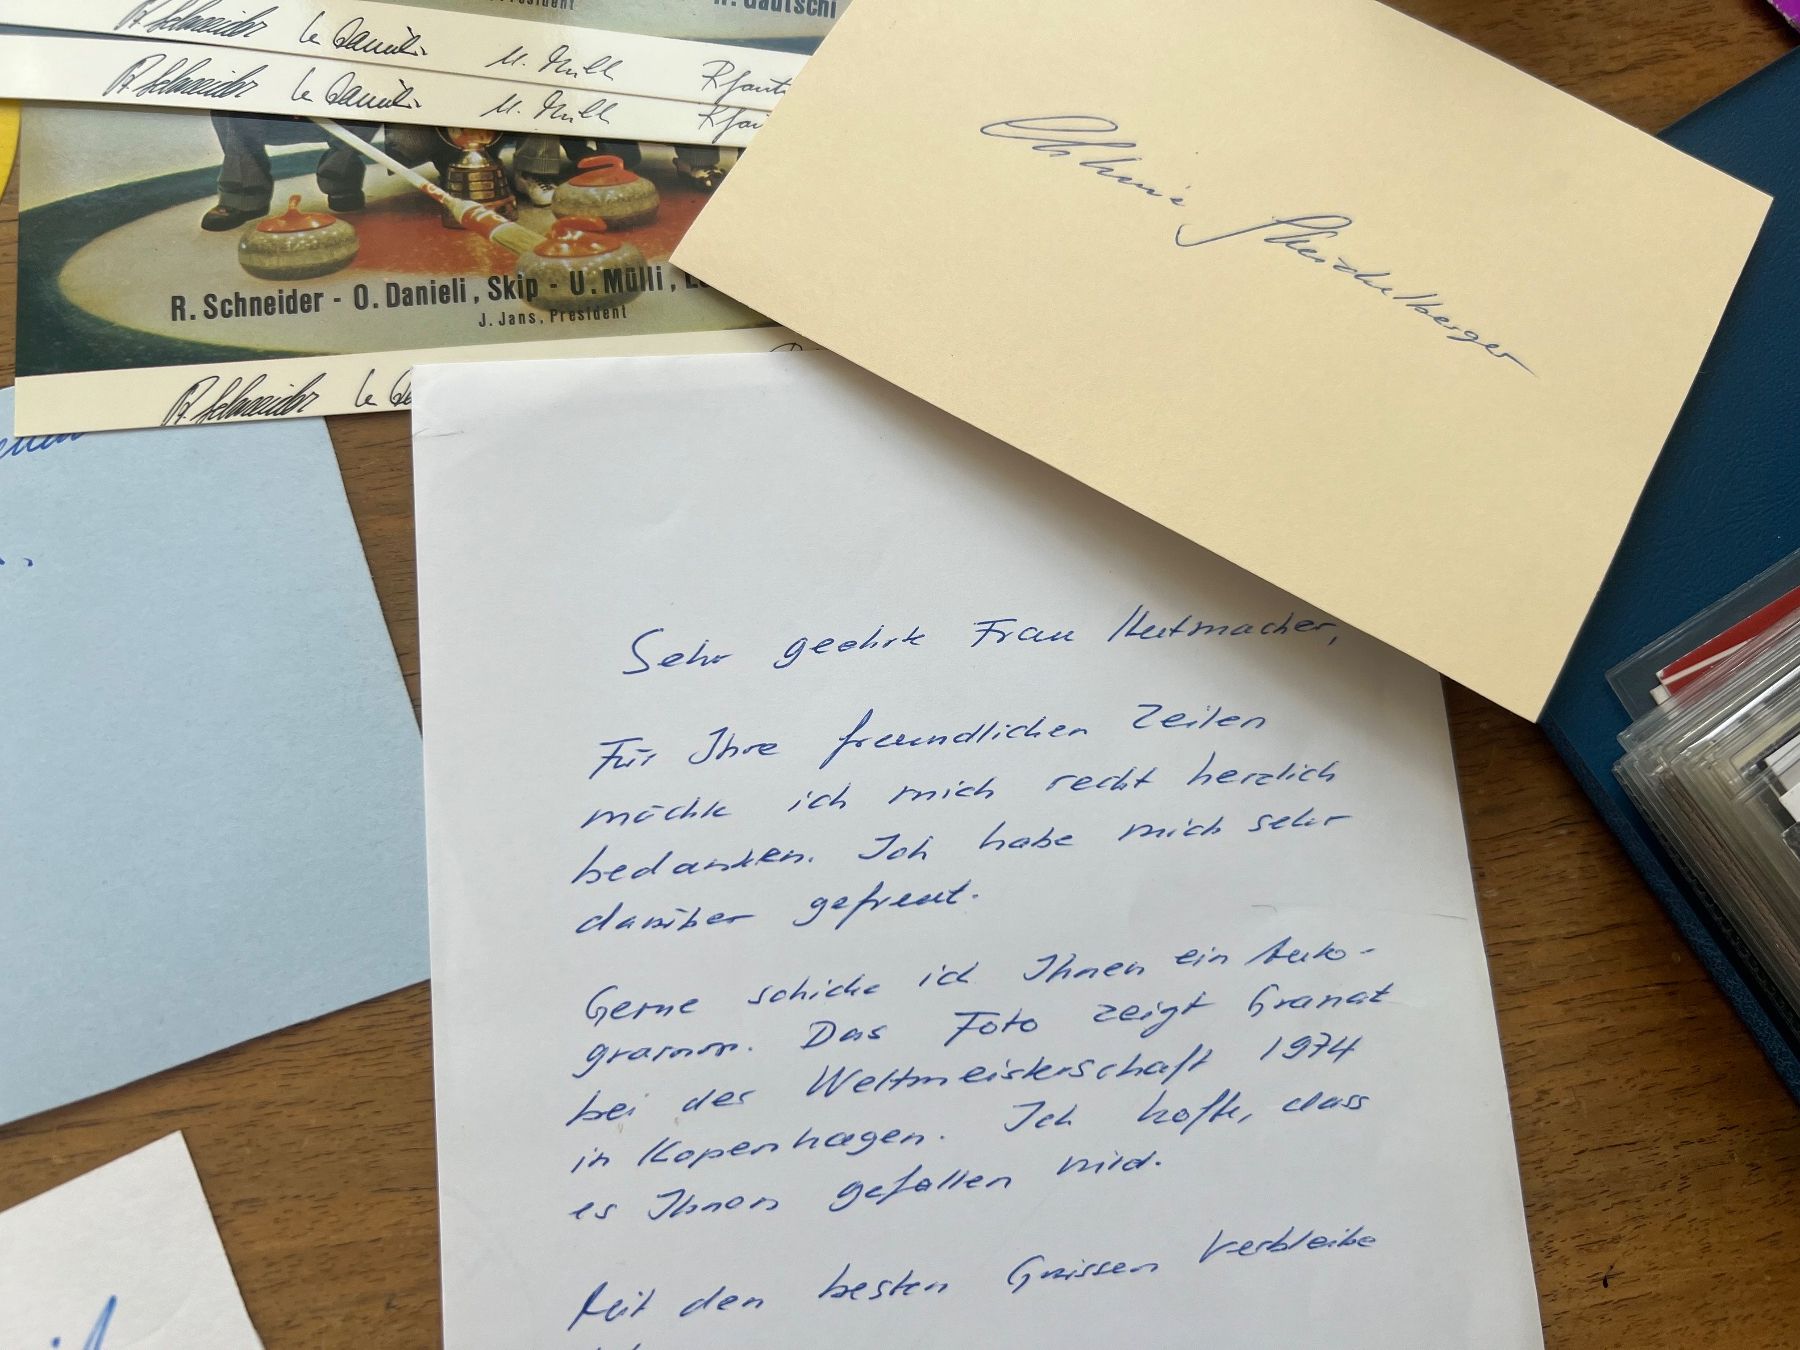 President
R. Gautschi
R. Schneider
U. Mülli
R. Schneider
U. Mülli
R. Schneider - O. Danieli, Skip - U. Mülli,
J. Jans, President
R. Schneider
Christine Stückelberger
Sehr geehrte Frau Hutmacher,
Für Ihre freundlichen Zeilen
möchte ich mich recht herzlich
bedanken. Ich habe mich sehr
darüber gefreut.
Gerne schicke ich Ihnen ein Auto-
gramm. Das Foto zeigt Granat
bei der Weltmeisterschaft 1974
in Kopenhagen. Ich hoffe, dass
es Ihnen gefallen wird.
Mit den besten Grüssen verbleibe